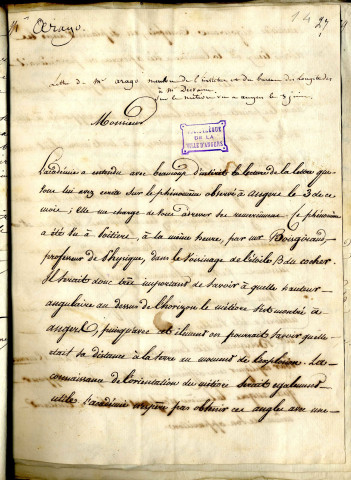 Arago.
14 27
Lettre de Mr arago membre de l'institut et du bureau des longitudes
à Mr
sur le météore vu à angers le 3 juin.
Monsieur
BIBLIOTHÈQUE
DE LA
VILLE D'ANGERS
L'académie a entendu avec beaucoup d'intérêt la lecture de la lettre que
vous lui avez écrite sur le phénomène observé à angers le 3 de ce
mois; Elle me charge de vous adresser ses remerciemens. Ce phénomène
a été vu à Poitiers, à la même heure, par mr Boisgiraud,
professeur de Physique, dans le voisinage de l'étoile B du cocher.
Il serait donc très important de savoir à quelle hauteur
angulaire au dessus de l'horizon le météore s'est montré à
angers, puisqu'avec cet élément on pourrait savoir quelle
était sa distance à la terre au moment de l'explosion. La
connaissance de l'orientation du météore serait également
utile. L'académie n'espère pas obtenir ces angles avec une